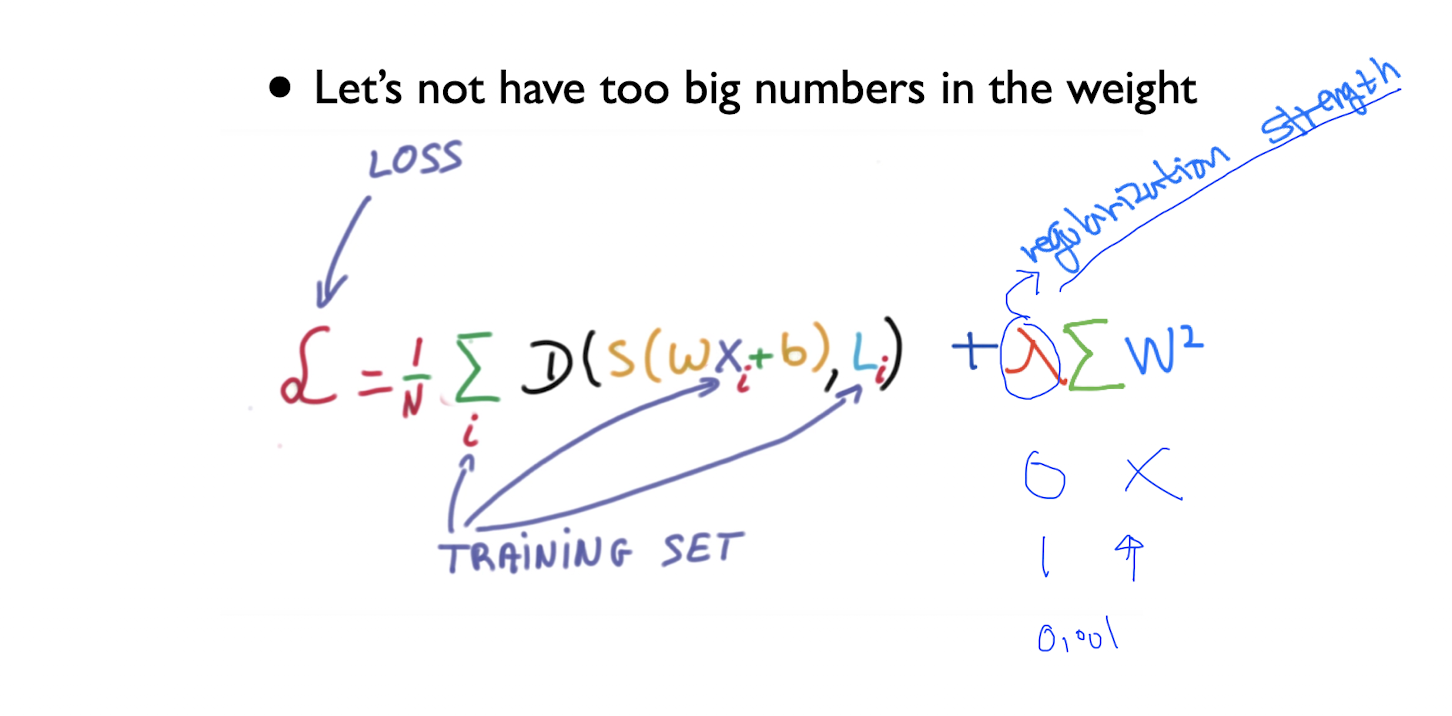 • Let's not have too big numbers in the weight
regularization strength
LOSS
ℒ = 1/N Σi D(S(WXi+b), Li) + λ Σ W²
0 X
1 ↑
0.001
TRAINING SET